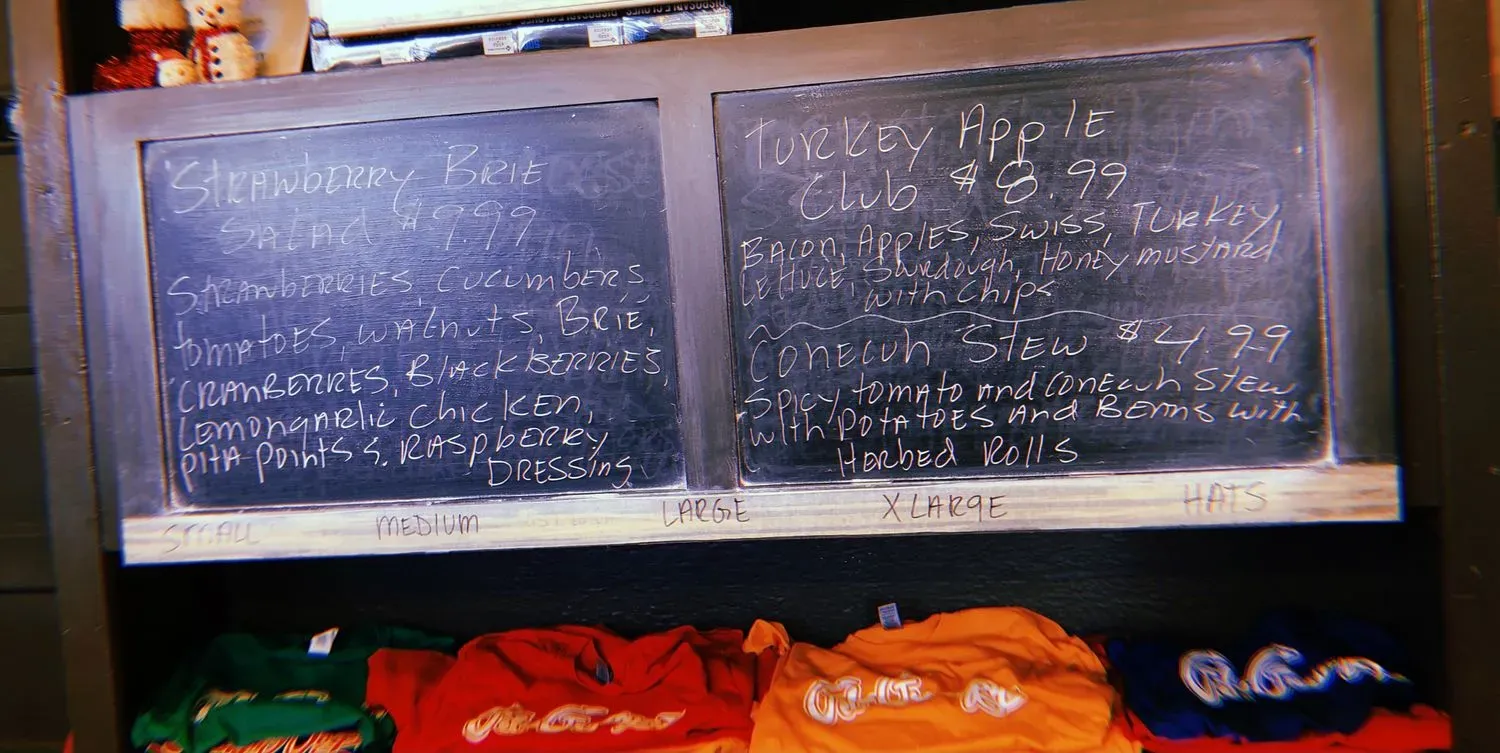 STRAWbERRY BRIE
SALAd $9.99
STRAWbERRIES, CUCUMbERS,
tOMATOES, WALnutS, BRIE,
CRANBERRES, BlACKBERRIES,
LEMONgARLic ChicKEN,
PITA Points &. RASpbERRY
DRESSINg
TURKEY AppLE
Club $8.99
BACON, APPLES, SWISS, TURKEY,
LETTUCE, SOURdOUgh, HONEY MUSTARd
with Chips
CONECUh STEW $4.99
SPICY tOMATO ANd CONECUh STEW
with POTATOES ANd BEANS with
HERbEd ROLLS
SMALL MEDIUM LARGE XLARGE HATS